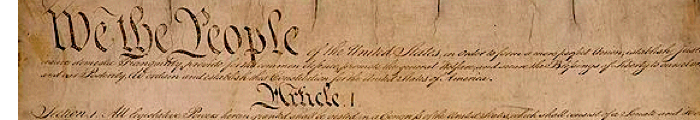 We the People of the United States, in Order to form a more perfect Union, establish Justice,
insure domestic Tranquility, provide for the common defence, promote the general Welfare, and secure the Blessings of Liberty to ourselves
and our Posterity, do ordain and establish this Constitution for the United States of America.
Article. I.
Section. 1. All legislative Powers herein granted shall be vested in a Congress of the United States, which shall consist of a Senate and